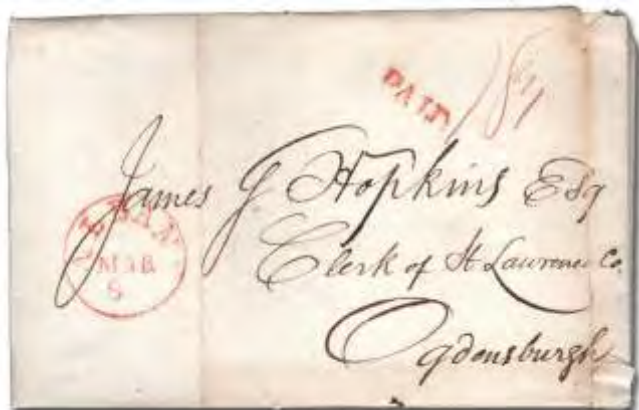 PAID
James G Hopkins Esq
Clerk of St Lawrence Co.
Ogdensburgh
MAR